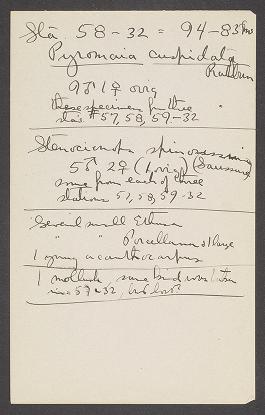 Sta. 58-32 = 94-83 fms
Pyromaia cuspidata
Rathbun
9♂ 1♀ ovig
these specimens from three
sta's #57, 58, 59-32
Stenocionops spinosissima
5♂ 2♀ (1 ovig) (Saussure)
some from each of three
stations 57, 58, 59-32
Several small Ethusa
" " Porcellanas 1 large
1 young acanthocarpus
1 mollusk, same kind was taken
in 57-32, but lost